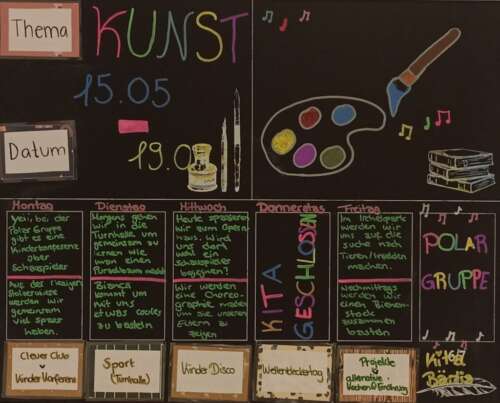 Thema
KUNST
15.05
19.0
Datum
Montag
Dienstag
Mittwoch
Donnerstag
Freitag
Yeii, bei der
Polar Gruppe
gibt es eine
Kinderkonferenz
über
Schauspieler
Aus der riesigen
werden wir
gemeinsam
viel spass
haben.
Morgens gehen
wir in die
Turnhalle um
gemeinsam zu
lernen wie
man einen
Purzelbaum macht
Bianca
kommt um
mit uns
etwas cooles
zu basteln
Heute spazieren
wir zum Opern-
haus. Wird
uns dort
wohl ein
Schauspieler
begegnen?
Wir werden
eine Choreo-
grafie
um sie unseren
Eltern zu
zeigen
KITA
GESCHLOSSEN
Im
werden wir
uns auf die
suche nach
Tieren/Insekten
machen.
Nachmittags
werden wir
einen Bienen-
stock
zusammen
basteln
POLAR
GRUPPE
Clever Club
Kinder Konferenz
Sport
(Turnhalle)
Kinder Disco
Weltentdeckertag
Projekte
alternative
Kita
Bärlis